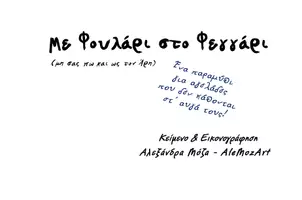 Με Φουλάρι στο Φεγγάρι
(μη σας πω και ως τον Άρη)
Ένα παραμύθι
για αγελάδες
που δεν κάθονται
στ' αυγά τους!
Κείμενο & Εικονογράφηση
Αλεξάνδρα Μόζα - AleMozArt